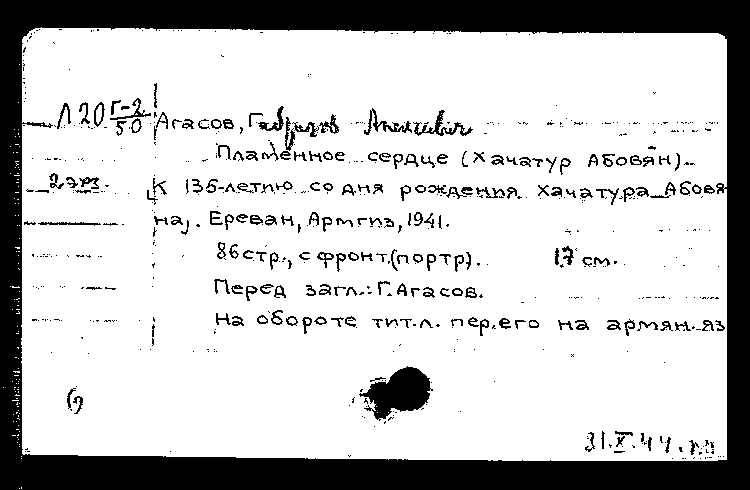 Л 20 Г-2/50
Агасов, Г
Пламенное сердце (Хачатур Абовян).
2 экз. [К 135-летию со дня рождения Хачатура Абовя-
на]. Ереван, Армгиз, 1941.
86 стр., с фронт. (портр). 17 см.
Перед загл.: Г. Агасов.
На обороте тит. л. пер. его на армян. яз
31.X.44.